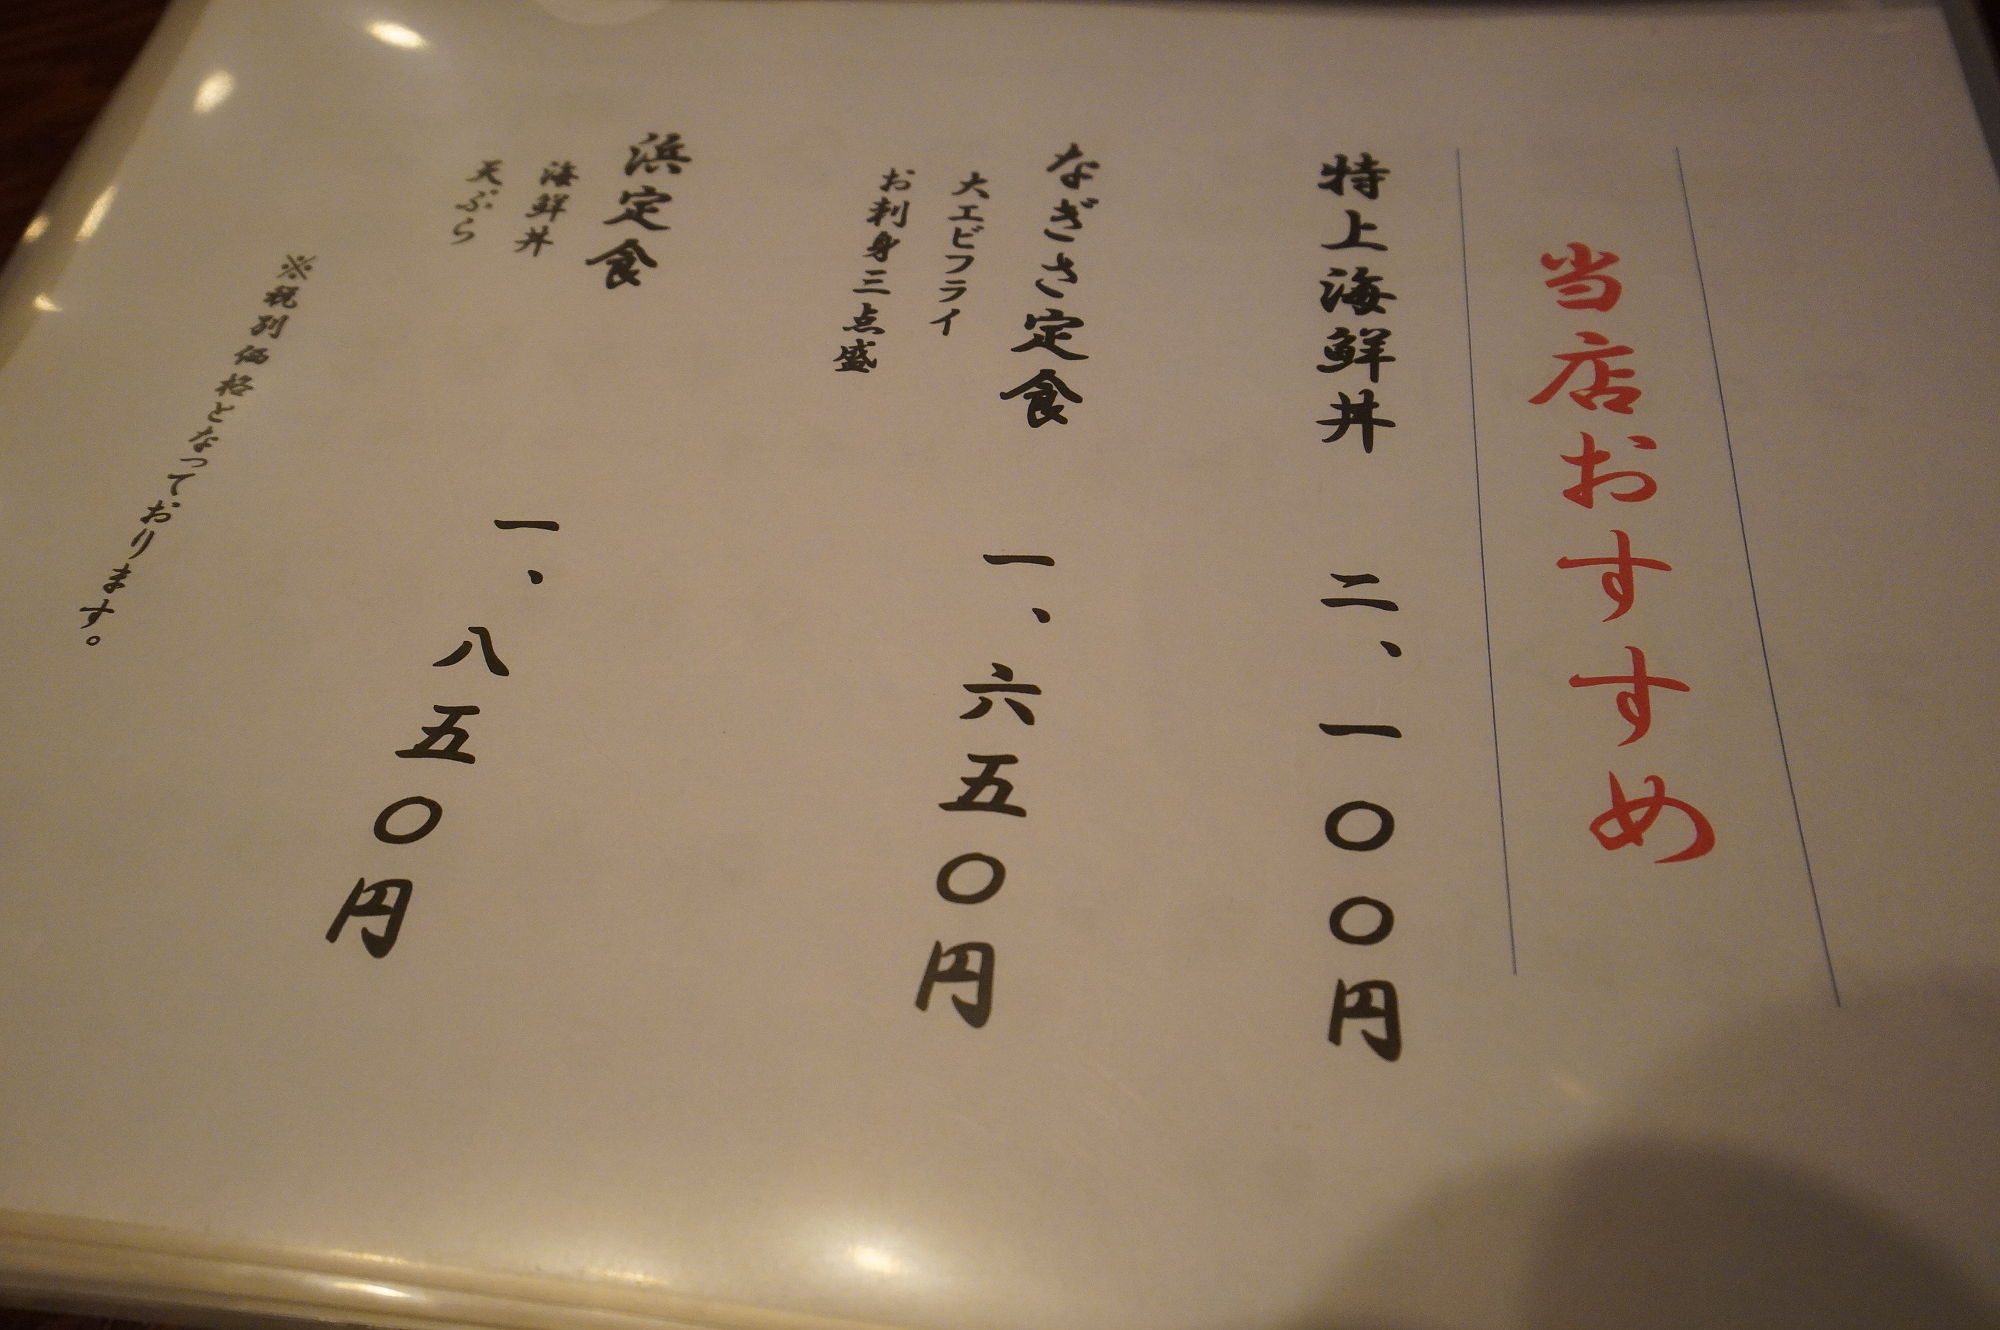 当店おすすめ
特上海鮮丼 二、一〇〇円
なぎさ定食 一、六五〇円
大エビフライ
お刺身三点盛
浜定食 一、八五〇円
海鮮丼
天ぷら
※税別価格となっております。